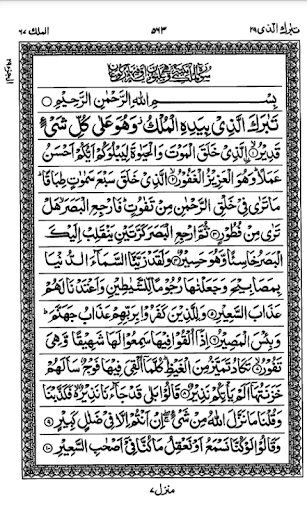 تبٰرك الذی ٢٩
٥٦٣
الملك ٦٧
بِسْمِ اللهِ الرَّحْمٰنِ الرَّحِيْمِ
تَبٰرَكَ الَّذِيْ بِيَدِهِ الْمُلْكُ وَهُوَ عَلٰى كُلِّ شَيْءٍ
قَدِيْرُ ۙ الَّذِيْ خَلَقَ الْمَوْتَ وَالْحَيٰوةَ لِيَبْلُوَكُمْ اَيُّكُمْ اَحْسَنُ
عَمَلًا وَهُوَ الْعَزِيْزُ الْغَفُوْرُ ۙ الَّذِيْ خَلَقَ سَبْعَ سَمٰوٰتٍ طِبَاقًا
مَا تَرٰى فِيْ خَلْقِ الرَّحْمٰنِ مِنْ تَفٰوُتٍ فَارْجِعِ الْبَصَرَ هَلْ
تَرٰى مِنْ فُطُوْرٍ ثُمَّ ارْجِعِ الْبَصَرَ كَرَّتَيْنِ يَنْقَلِبْ اِلَيْكَ
الْبَصَرُ خَاسِئًا وَّهُوَ حَسِيْرٌ وَلَقَدْ زَيَّنَّا السَّمَآءَ الدُّنْيَا
بِمَصَابِيْحَ وَجَعَلْنٰهَا رُجُوْمًا لِّلشَّيٰطِيْنِ وَاَعْتَدْنَا لَهُمْ
عَذَابَ السَّعِيْرِ وَلِلَّذِيْنَ كَفَرُوْا بِرَبِّهِمْ عَذَابُ جَهَنَّمَ
وَبِئْسَ الْمَصِيْرُ اِذَآ اُلْقُوْا فِيْهَا سَمِعُوْا لَهَا شَهِيْقًا وَّهِيَ
تَفُوْرُ ۙ تَكَادُ تَمَيَّزُ مِنَ الْغَيْظِ كُلَّمَآ اُلْقِيَ فِيْهَا فَوْجٌ سَاَلَهُمْ
خَزَنَتُهَآ اَلَمْ يَاْتِكُمْ نَذِيْرٌ قَالُوْا بَلٰى قَدْ جَآءَنَا نَذِيْرٌ فَكَذَّبْنَا
وَقُلْنَا مَا نَزَّلَ اللهُ مِنْ شَيْءٍ اِنْ اَنْتُمْ اِلَّا فِيْ ضَلٰلٍ كَبِيْرٍ
وَقَالُوْا لَوْ كُنَّا نَسْمَعُ اَوْ نَعْقِلُ مَا كُنَّا فِيْٓ اَصْحٰبِ السَّعِيْرِ
منزل ٧